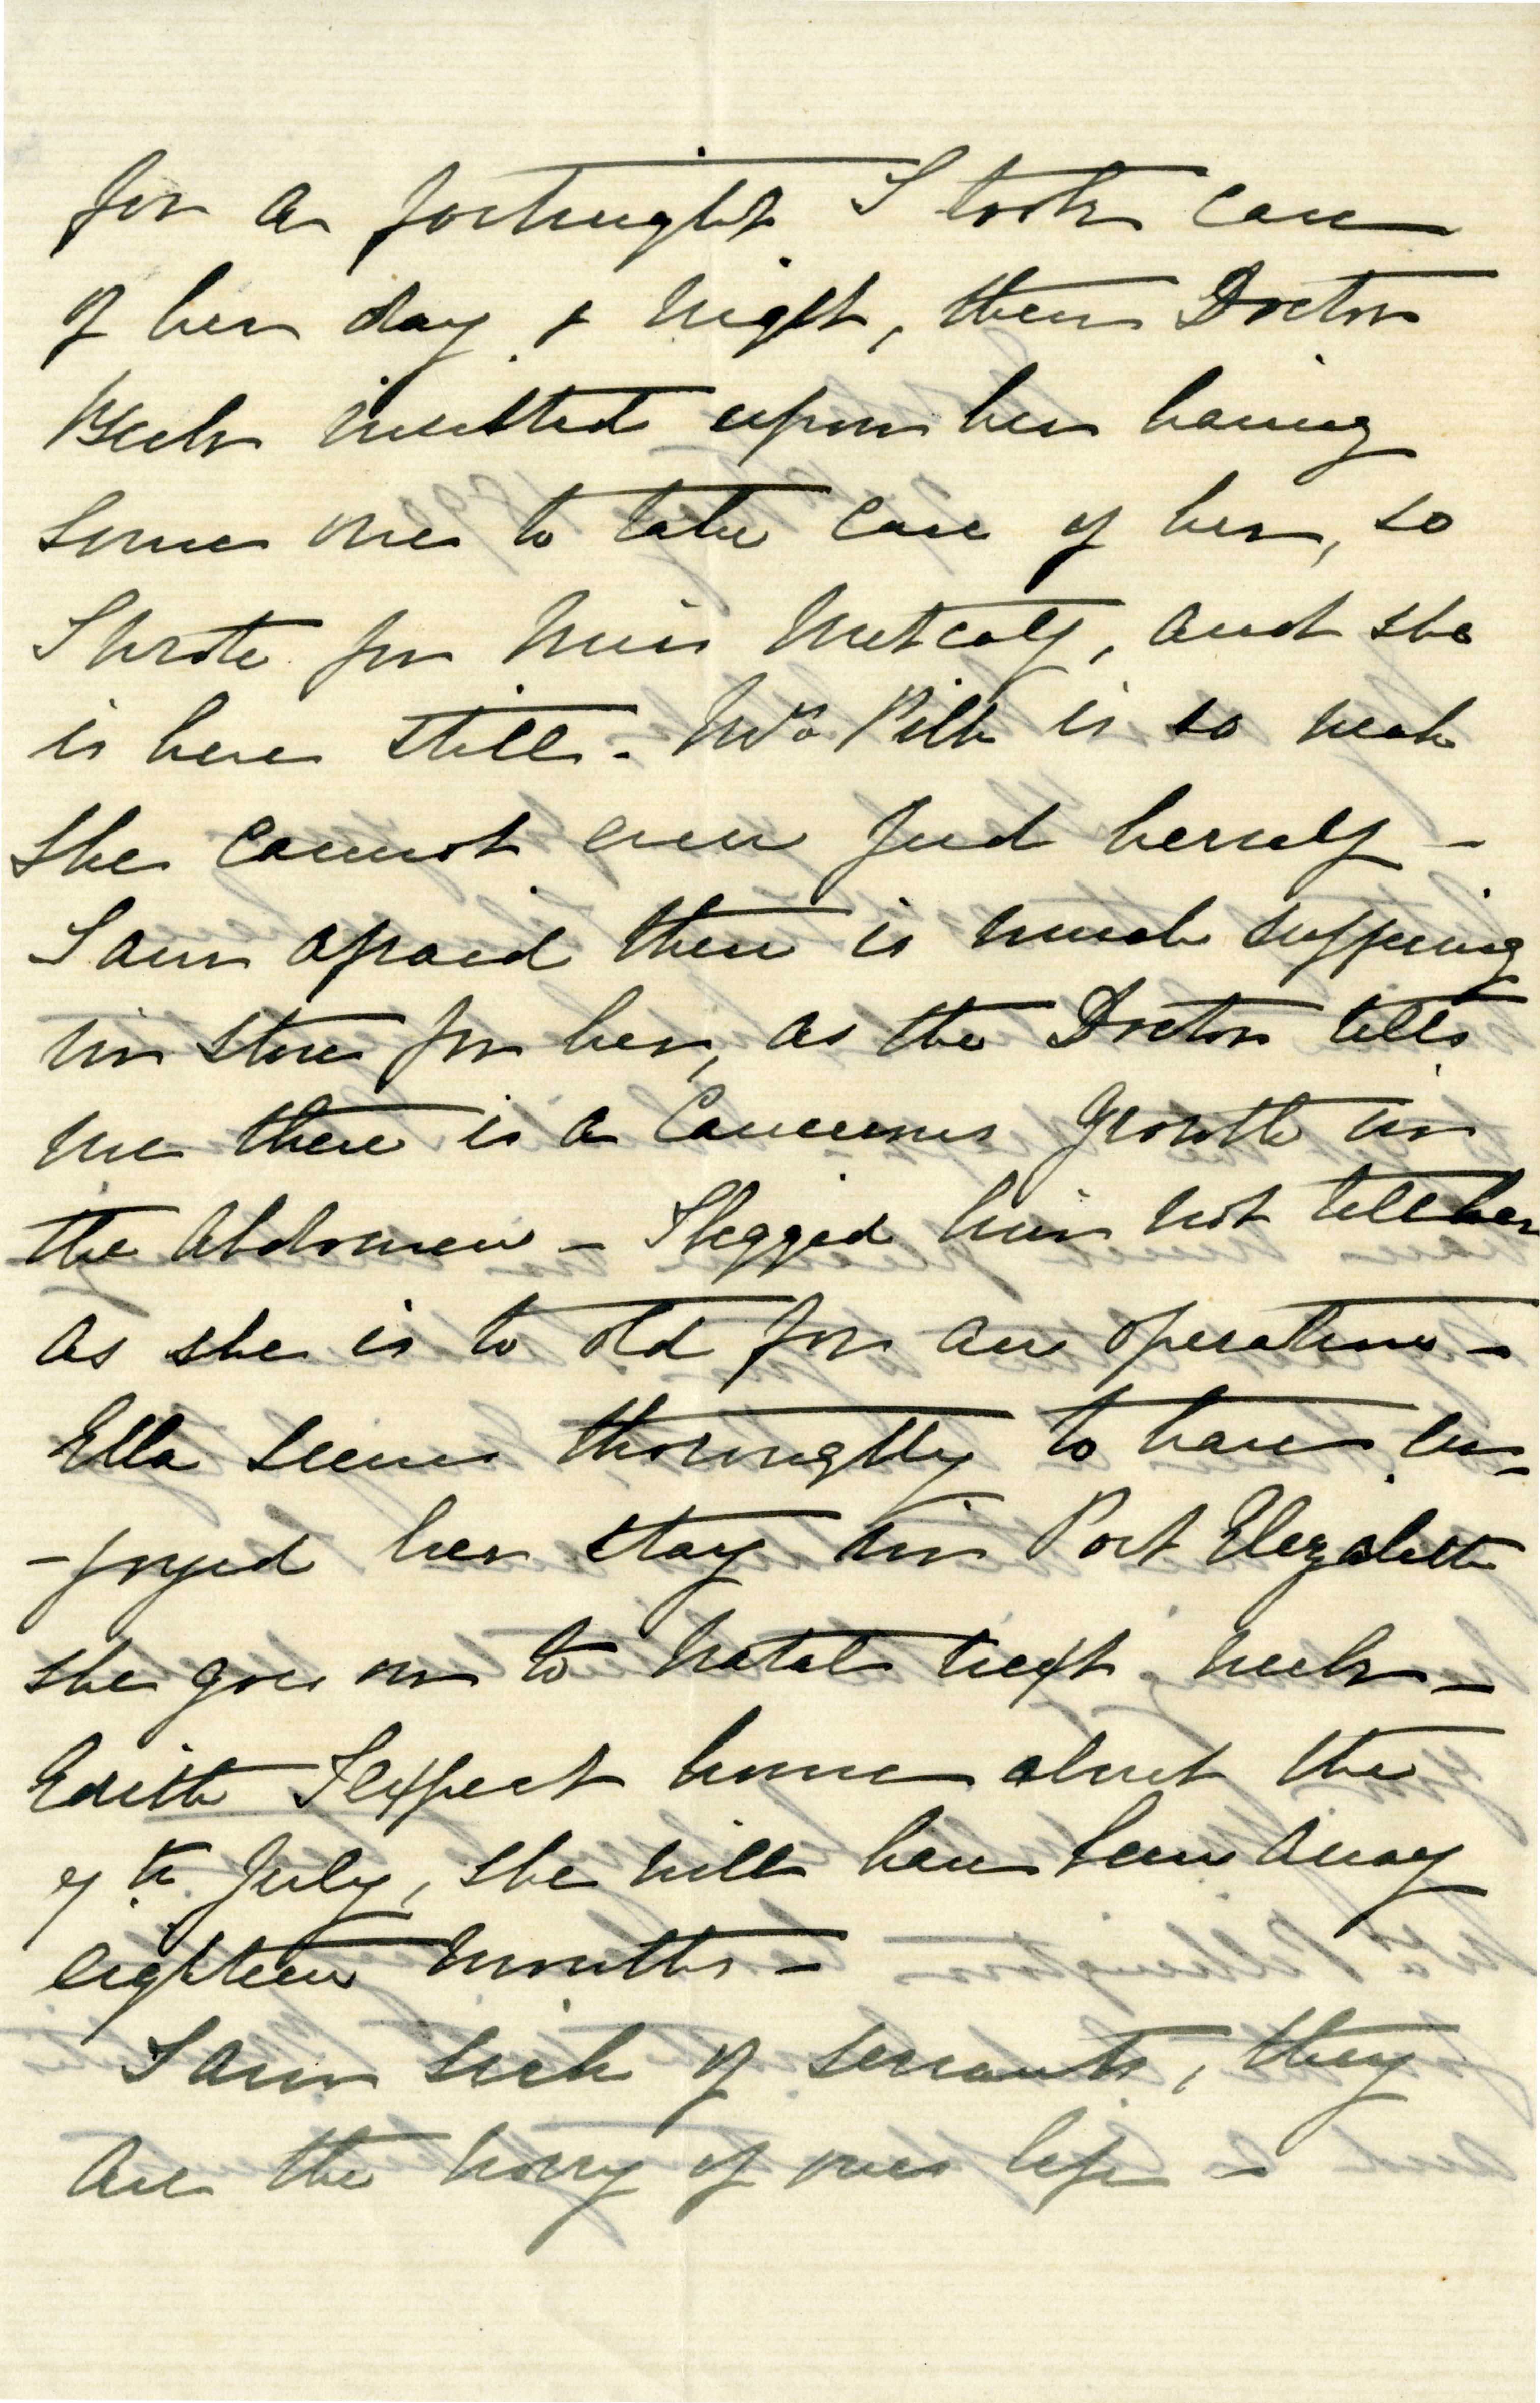 for a fortnight I took care
of her day & night, then Doctor
Beck insisted upon her having
some one to take care of her, so
I wrote for Miss Metcalf, and she
is here still - Mrs Pilk is so weak
she cannot even feed herself -
I am afraid there is much suffering
in store for her, as the Doctor tells
me there is a Cancerous growth in
the Abdomen - I begged him not tell her
as she is to old for an operation -
Ella seems thoroughly to have en-
-joyed her stay in Port Elizabeth
she goes on to Natal next week -
Edith I expect home about the
7th July, she will have been away
eighteen months -
I am sick of servants, they
are the worry of ones life -